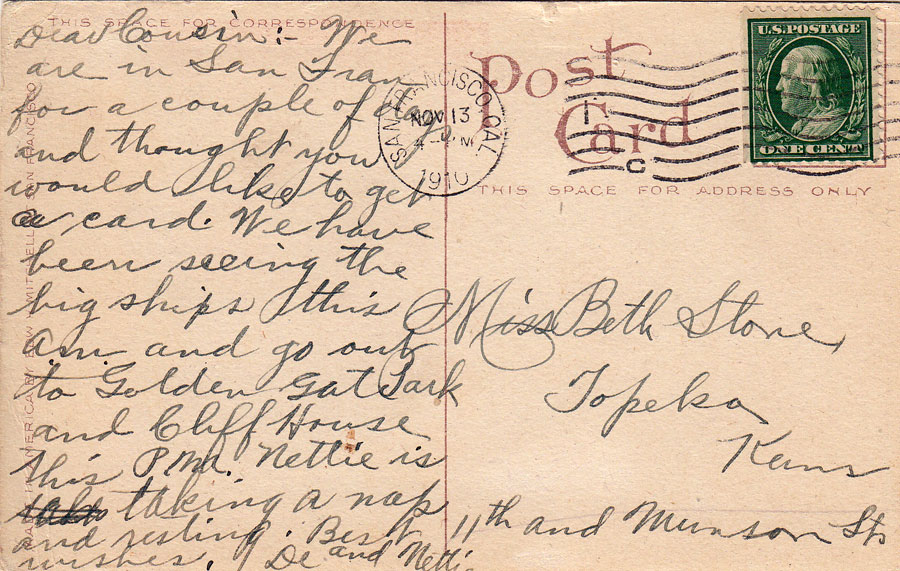 THIS SPACE FOR CORRESPONDENCE
Dear Cousin:- We
are in San Fran
for a couple of days
and thought you
would like to get
a card. We have
been seeing the
big ships this
a.m. and go out
to Golden Gat Park
and Cliff House
this P.M. Nettie is
taking a nap
and resting. Best
wishes. De and Nettie
Post
Card
SAN FRANCISCO, CAL.
NOV 13
1910
U.S. POSTAGE
ONE CENT
THIS SPACE FOR ADDRESS ONLY
Miss Beth Stone,
Topeka
Kans
11th and Munson Sts